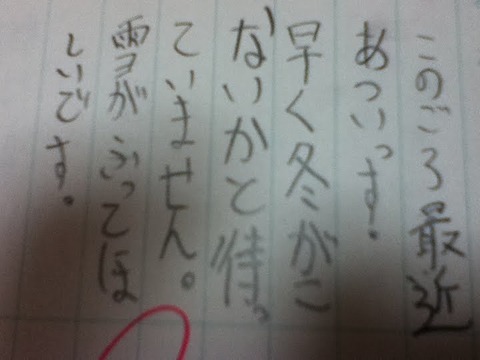 このごろ最近
あついっす!
早く冬がこ
ないかと待っ
ていません。
雪がふってほ
しいです。